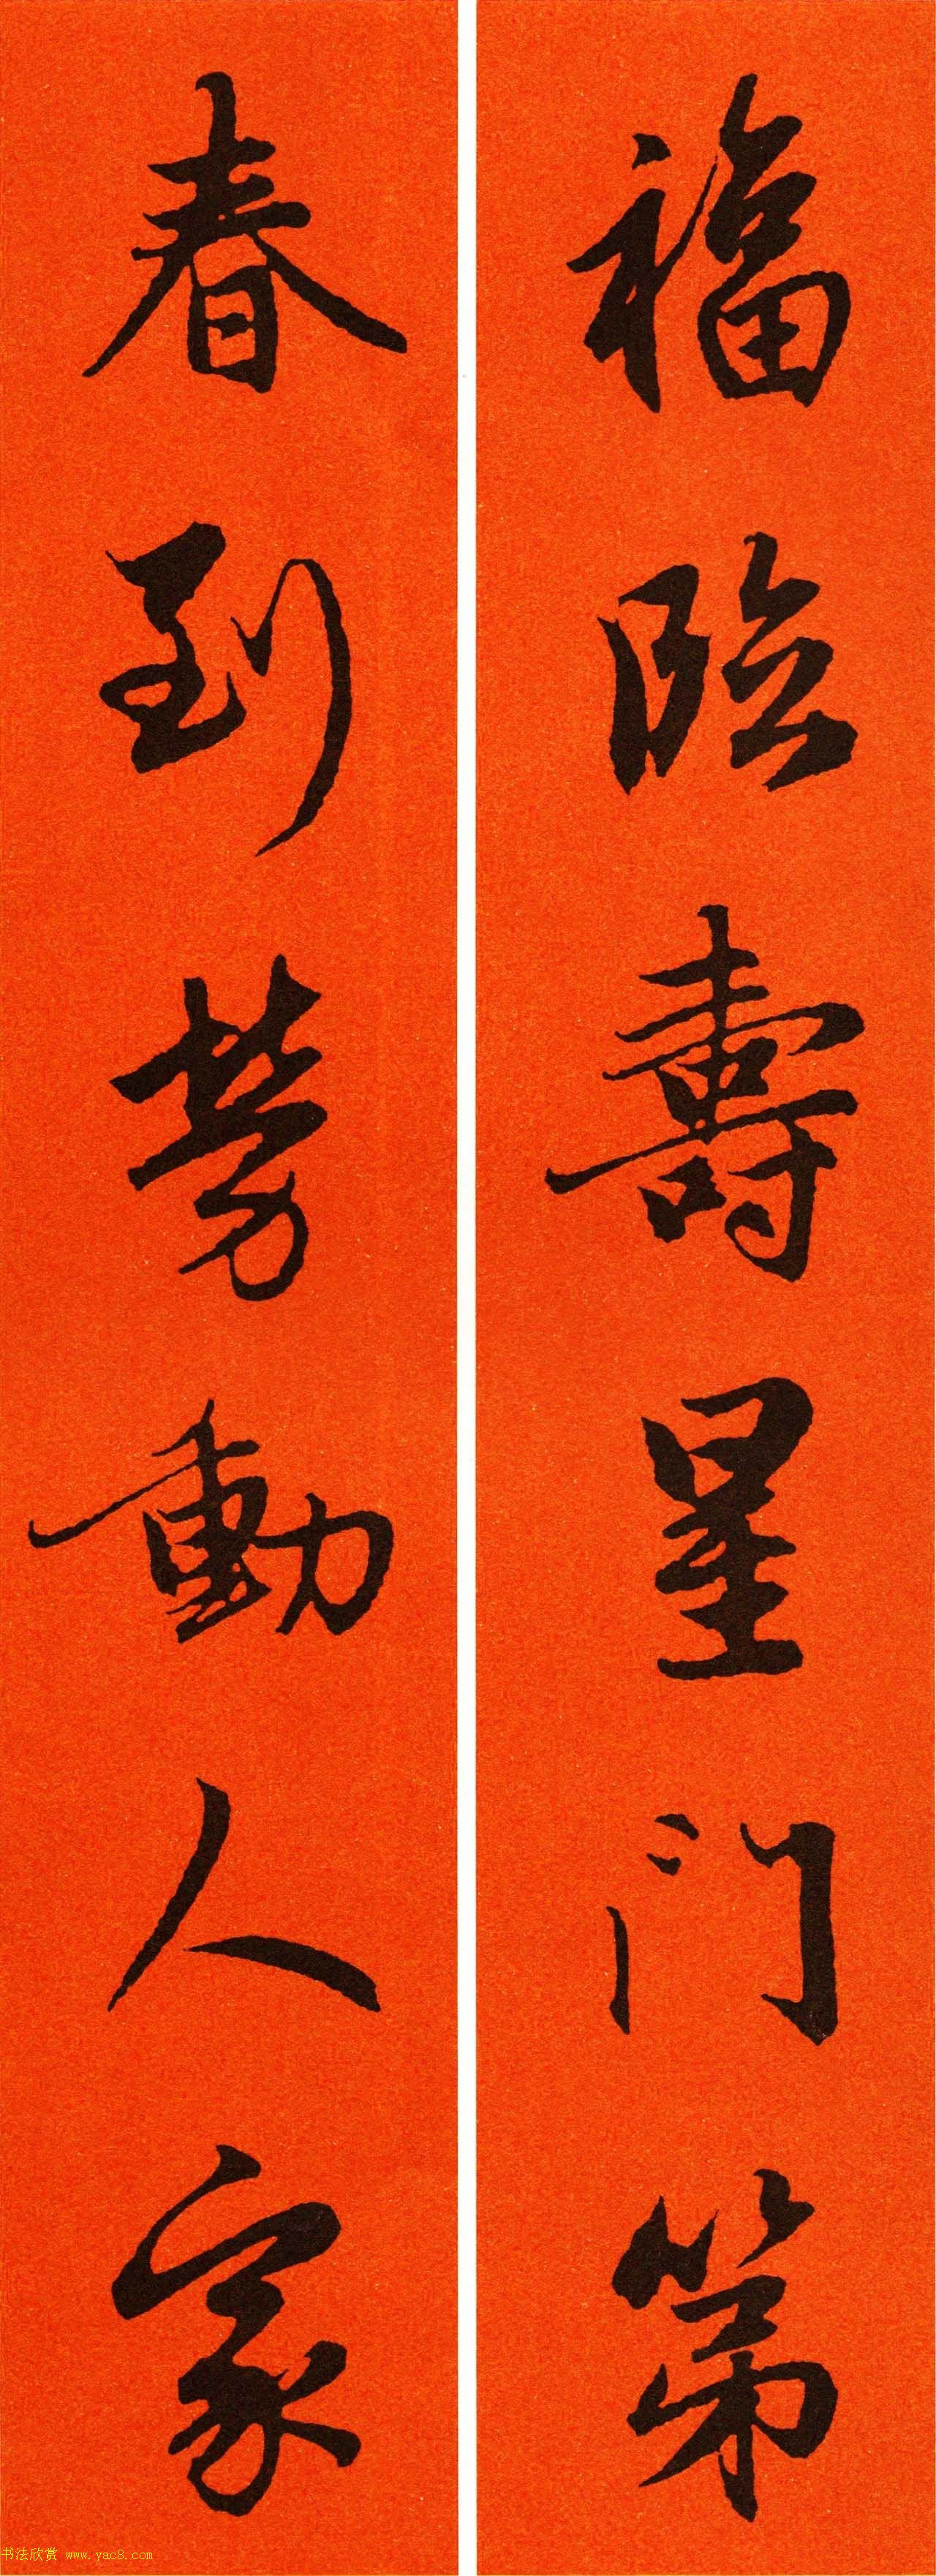 福臨壽星門第
春到勞動人家
书法欣赏 www.yac8.com